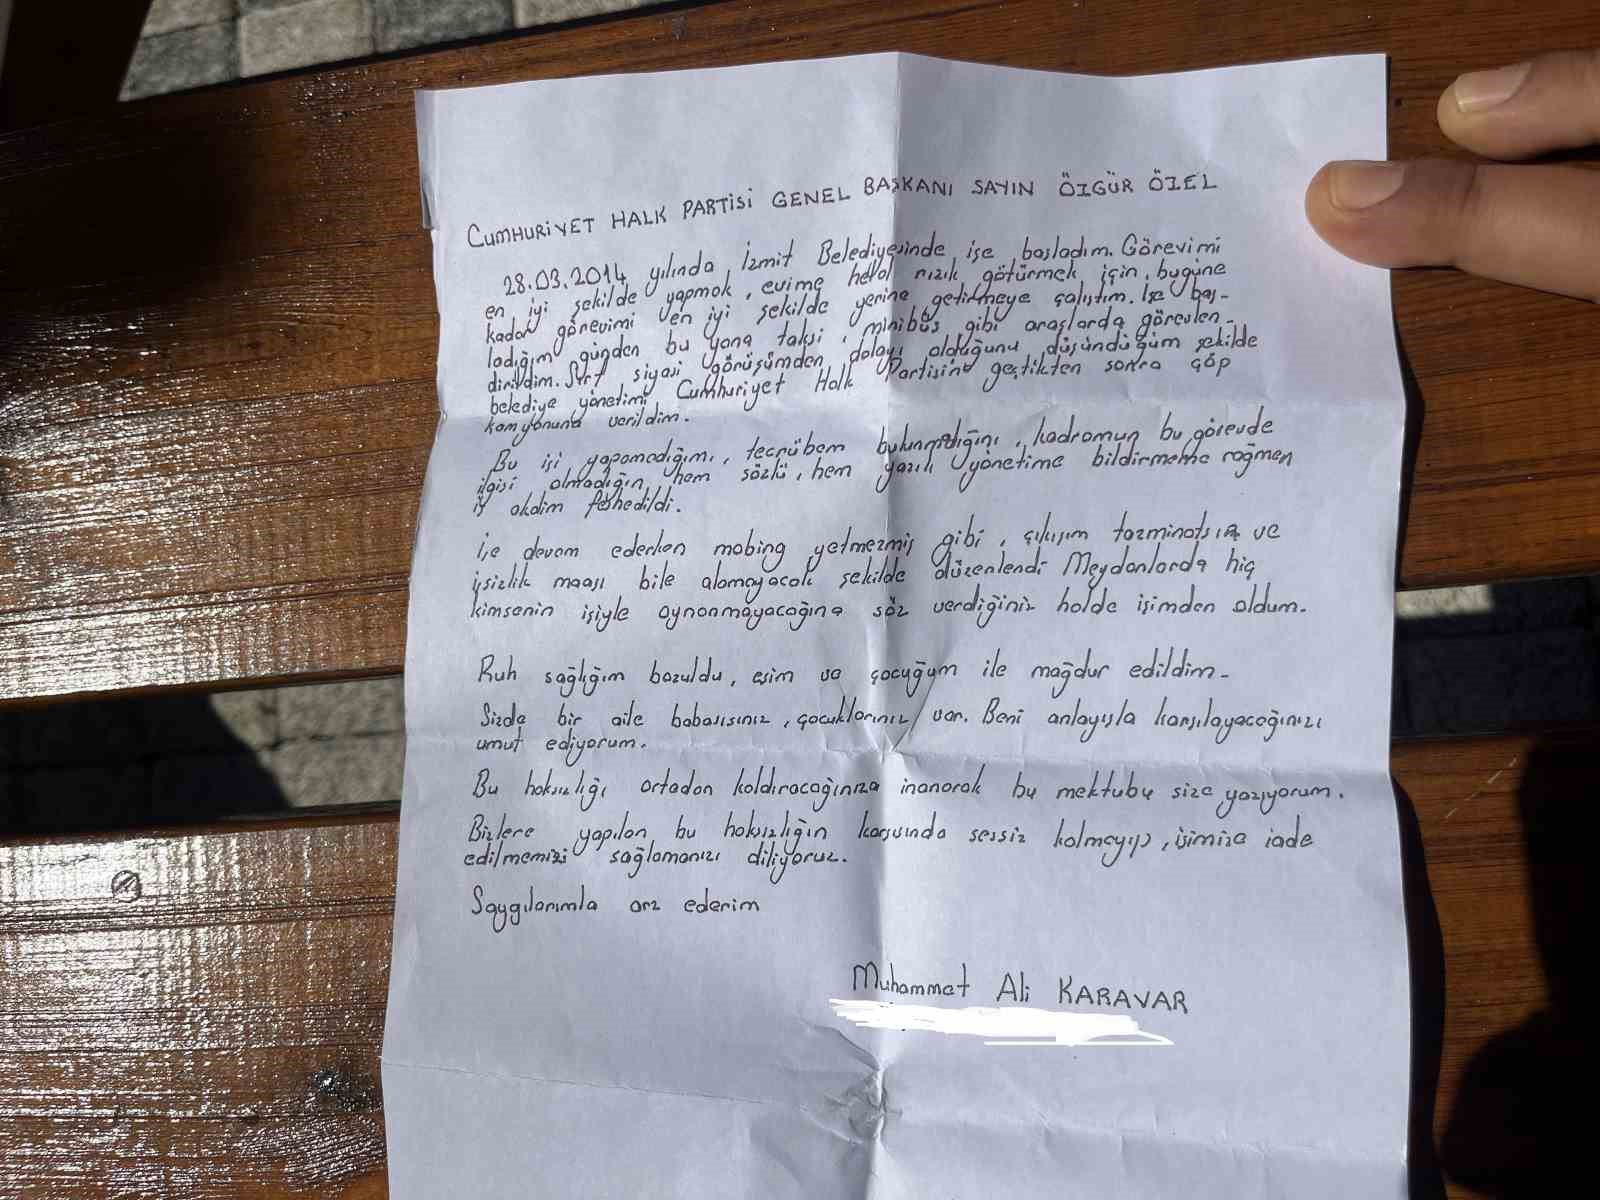 CUMHURİYET HALK PARTİSİ GENEL BAŞKANI SAYIN ÖZGÜR ÖZEL
28.03.2014 yılında İzmit Belediyesinde işe başladım. Görevimi
en iyi şekilde yapmak, evime helal rızık götürmek için, bugüne
kadar görevimi en iyi şekilde yerine getirmeye çalıştım. İşe baş-
ladığım günden bu yana taksi, minibüs gibi araçlarda görevlen-
dirildim. Sırf siyasi görüşümden dolayı olduğunu düşündüğüm şekilde
belediye yönetimi Cumhuriyet Halk Partisine geçtikten sonra çöp
kamyonuna verildim.
Bu işi yapamadığımı, tecrübem bulunmadığını, kadromun bu görevde
ilgisi olmadığın hem sözlü, hem yazılı yönetime bildirmeme rağmen
iş akdim feshedildi.
İşe devam ederken mobing yetmezmiş gibi, çıkışım tazminatsız ve
işsizlik maaşı bile alamayacak şekilde düzenlendi Meydanlarda hiç
kimsenin işiyle oynanmayacağına söz verdiğiniz halde işimden oldum.
Ruh sağlığım bozuldu, eşim ve çocuğum ile mağdur edildim.
Sizde bir aile babasısınız, çocuklarınız var. Beni anlayışla karşılayacağınızı
umut ediyorum.
Bu haksızlığı ortadan kaldıracağınıza inanarak bu mektubu size yazıyorum.
Bizlere yapılan bu haksızlığın karşısında sessiz kalmayıp, işimize iade
edilmemizi sağlamanızı diliyoruz.
Saygılarımla arz ederim
Muhammet Ali KARAVAR